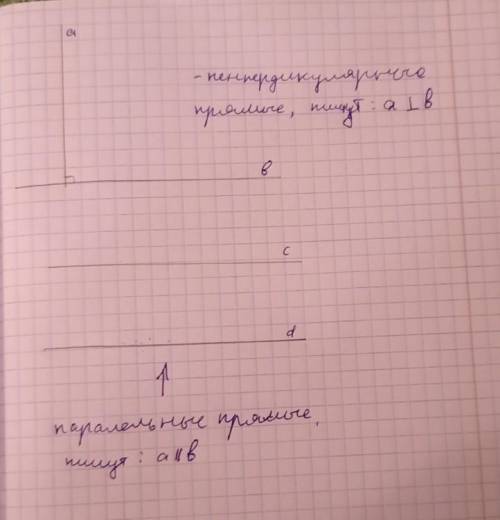 a
-пенпердикулярные
прямые, пишут: a ⊥ b
b
c
d
паралельные прямые,
пишут: a || b